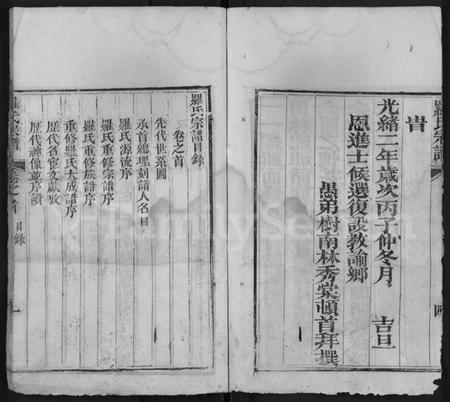 旹
光緒二年歲次丙子仲冬月 吉旦
恩進士候選復設教諭鄉
愚弟樹南林秀棠頓首拜撰
羅氏宗譜目錄
卷之首
先代世系圖
承首總理刻譜人名目
羅氏源流序
羅氏重修宗譜序
羅氏重修族譜序
重修羅氏大成譜序
歷代名宦文獻攷
歷代神像蔓序讚
目錄
FamilySearch